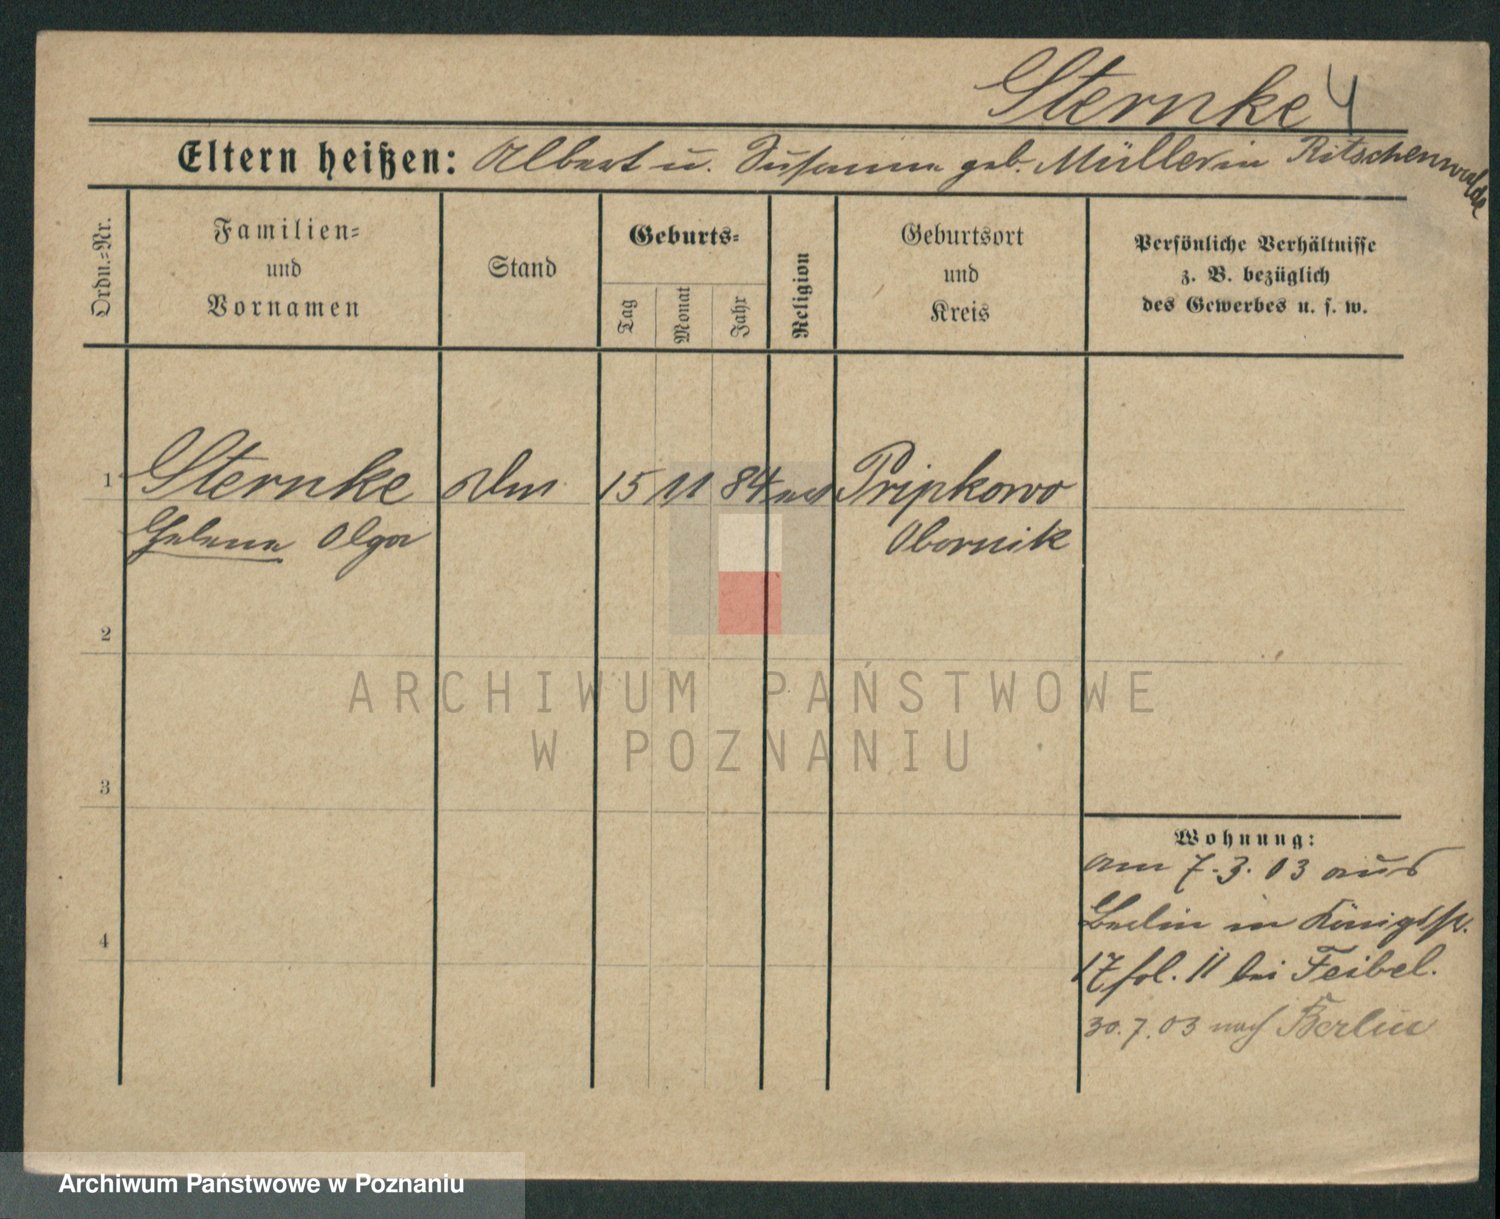 Sternke
Eltern heißen: Albert u. Susanna geb. Müller in Ritschenwalde
Ordn.-Nr.
Familien-
und
Vornamen
Stand
Geburts-
Tag
Monat
Jahr
Religion
Geburtsort
und
Kreis
Persönliche Verhältnisse
z. B. bezüglich
des Gewerbes u. s. w.
1 Sternke 15 11 84 Pripkowo
Helena Olga Obornik
2
ARCHIWUM PAŃSTWOWE
W POZNANIU
3
Wohnung:
am 7.3.03 aus
Berlin in Königsstr.
4
17 fol. II bei Feibel.
30.7.03 nach Berlin
Archiwum Państwowe w Poznaniu